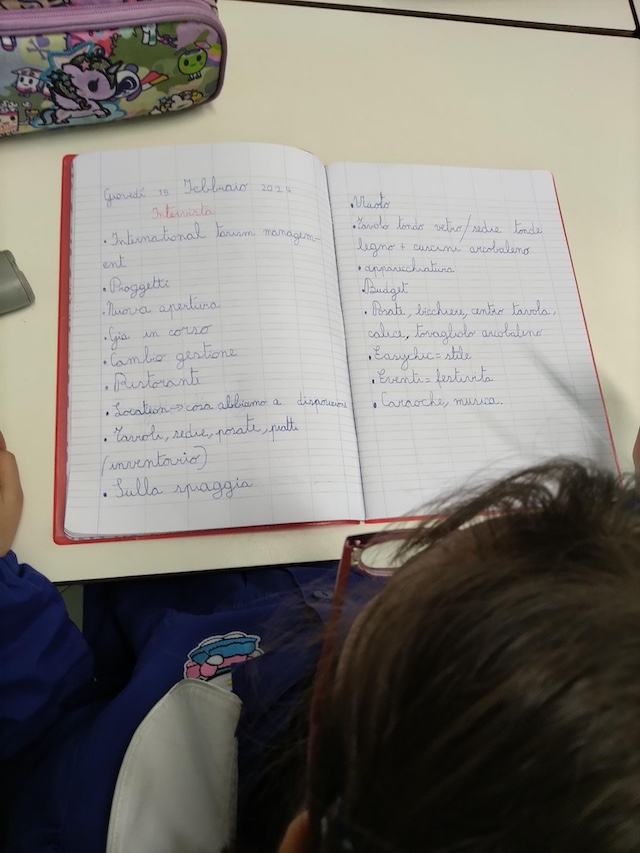 Giovedì 15 Febbraio 2024
Intervista
• International turism managem-
ent
• Proggetti
• Nuova apertura
• Già in corso
• Cambio gestione
• Ristoranti
• Location → cosa abbiamo a disposizione
• Tavoli, sedie, posate, piatti
(inventario)
• Sulla spiaggia
• Vuoto
• Tavolo tondo vetro/sedie tonde
legno + cuscini arcobaleno
• apparecchiatura
• Budget
• Posate, bicchiere, centro tavola,
calice, tovagliolo arcobaleno
• Easychic = stile
• Eventi = festività
• Caraoche, musica.